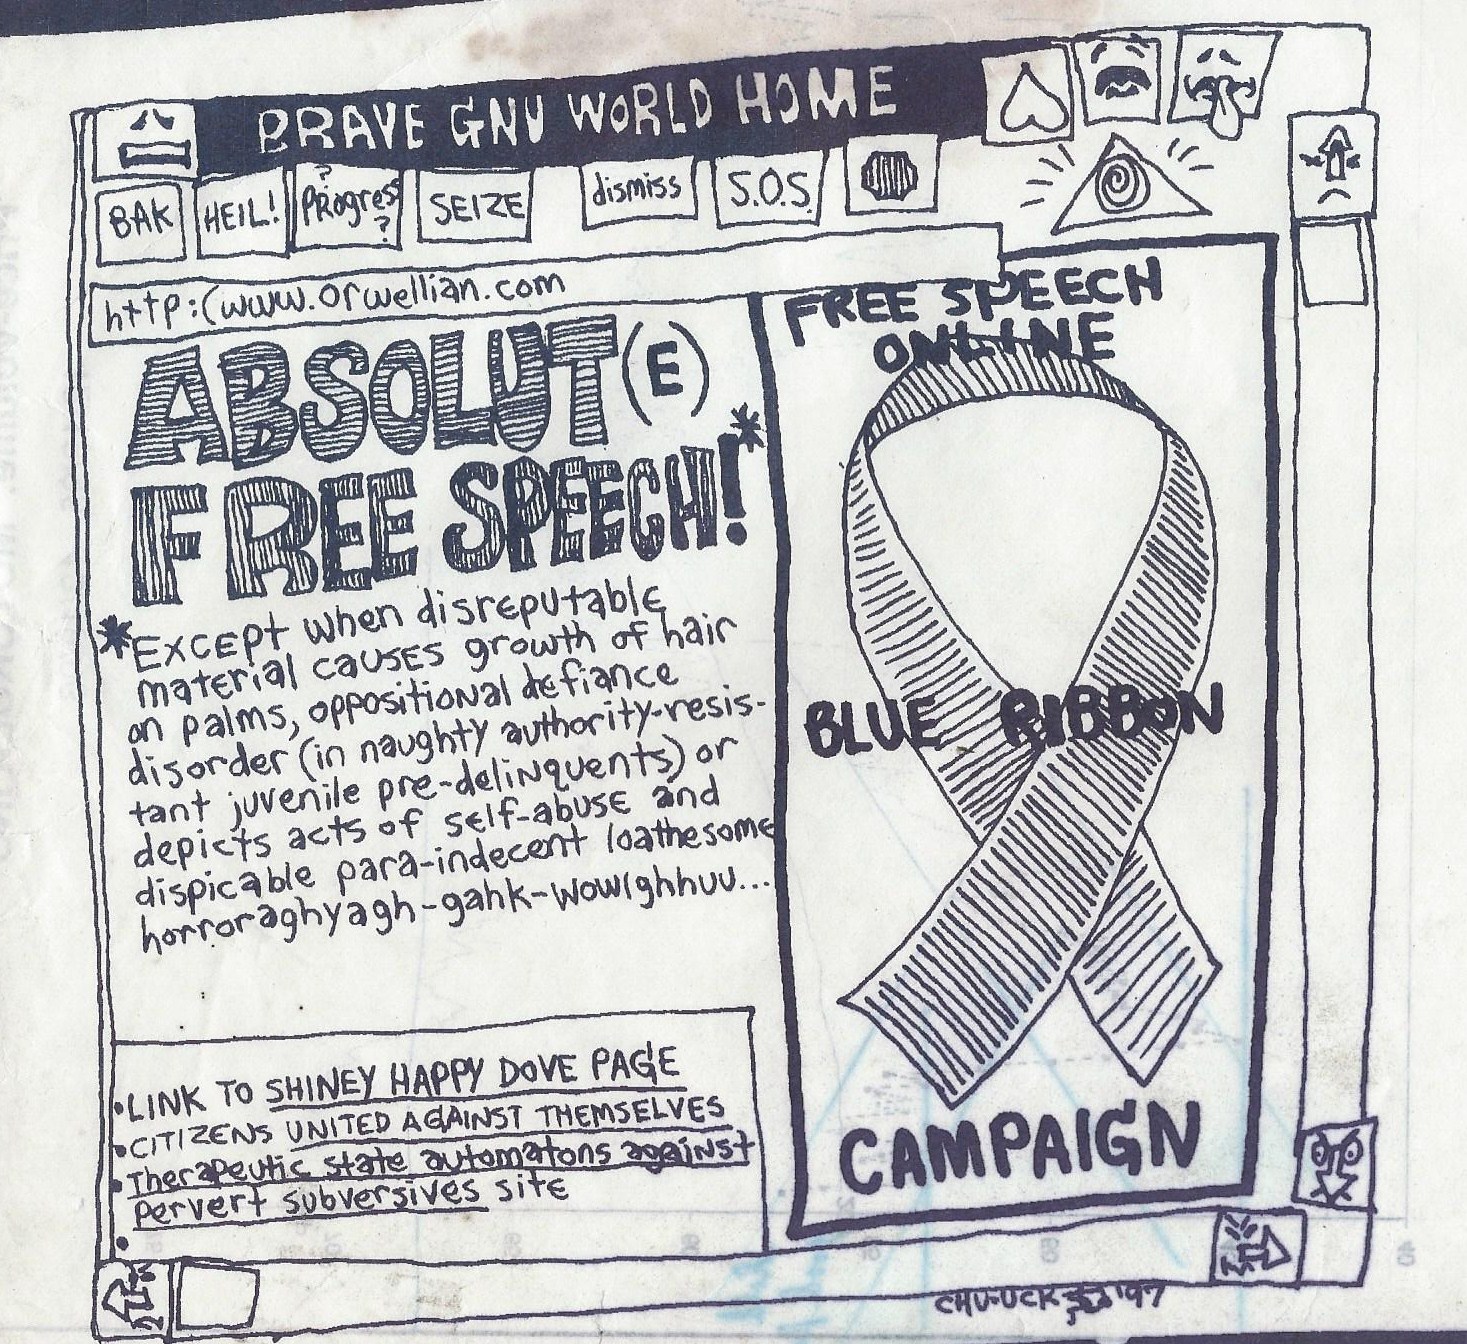 BRAVE GNU WORLD HOME
BAK
HEIL!
?
Progress
?
SEIZE
dismiss
S.O.S.
http:(www.Orwellian.com
ABSOLUT(E)
FREE SPEECH!*
*EXCEPT when disreputable
material causes growth of hair
on palms, oppositional defiance
disorder (in naughty authority-resis-
tant juvenile pre-delinquents) or
depicts acts of self-abuse and
dispicable para-indecent loathesome
horroraghyagh-gahk-wowighhuu...
•LINK TO SHINEY HAPPY DOVE PAGE
•CITIZENS UNITED AGAINST THEMSELVES
•Therapeutic state automatons against
pervert subversives site
•
FREE SPEECH
ONLINE
BLUE RIBBON
CAMPAIGN
'97